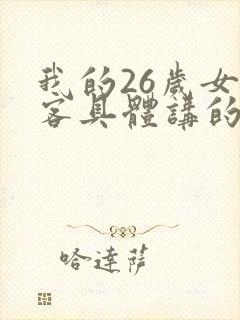 我的26歲女
客具體講的
哈達薩